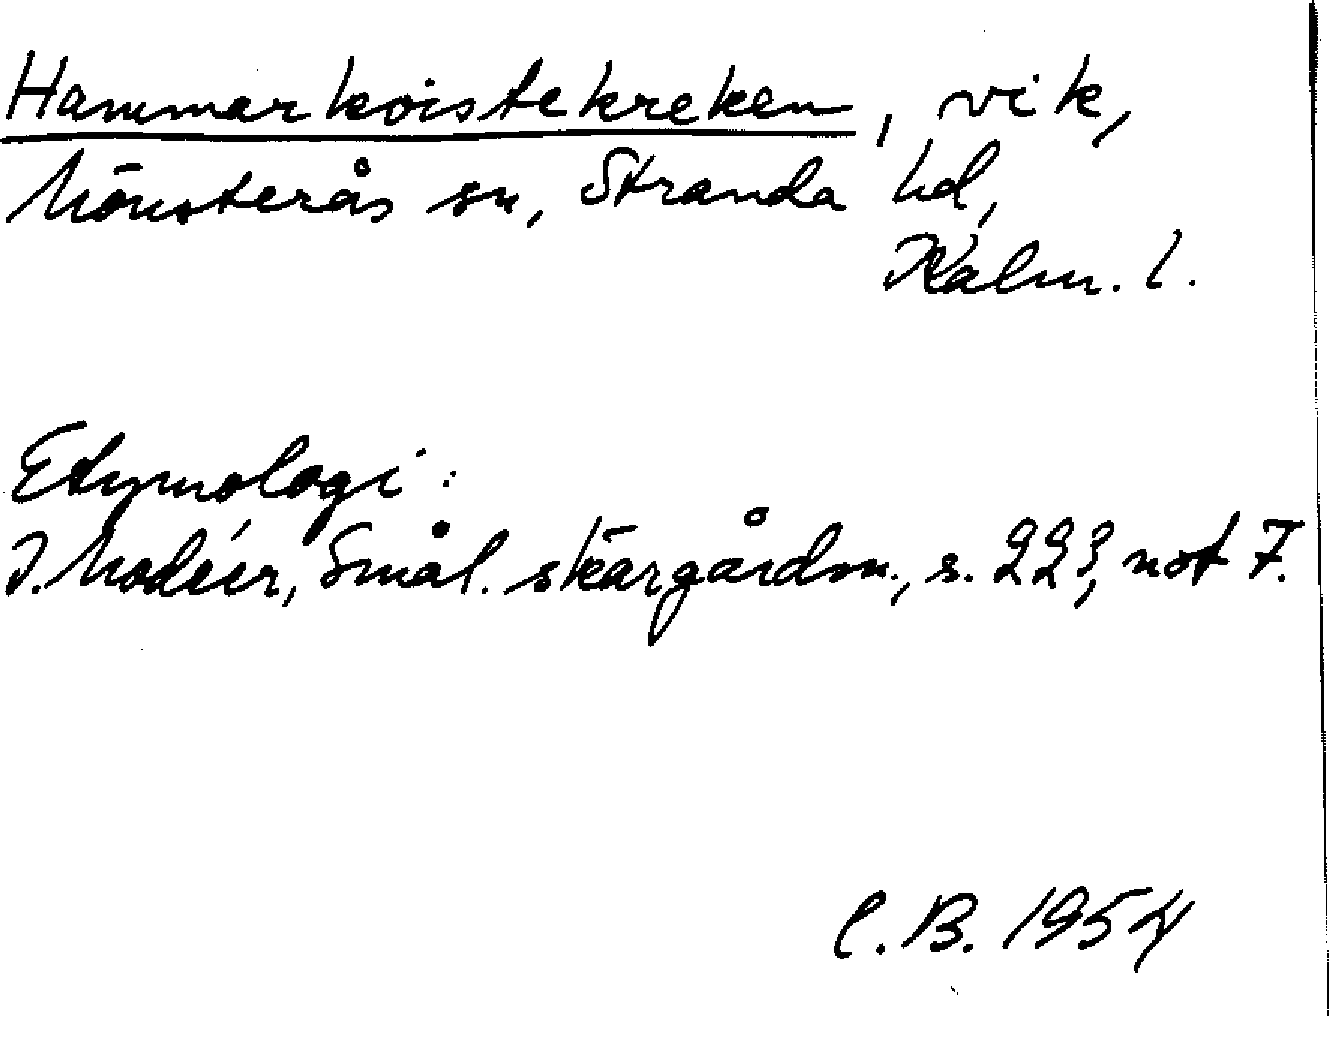 Hammarkoistekreken, vik,
Mönsterås sn, Stranda hd,
Kalm. l.
Etymologi:
I. Modéer, Smål. skärgårdsn., s. 223, not 7.
C. B. 1954